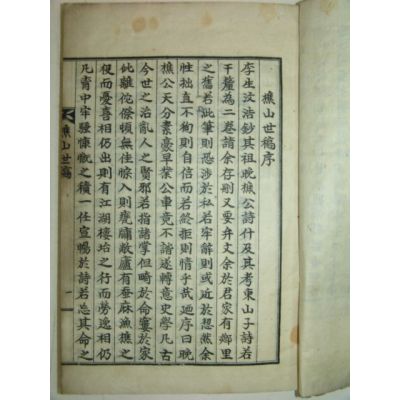 樵山世稿序
李生汶浩鈔其祖晚樵公詩什及其考東山子詩若
干釐為二卷請余存刪又要弁文余於君家有鄉里
之舊若此筆則恐涉於私若牢解則或近於恝然余
性拙直不徇則自信而若終拒則情乎哉廼序曰晚
樵公天分素豪早業公車竟不諧遂轉意史學凡古
今世之治亂人之賢邪若指諸掌但畸於命窶於家
此離佗傺頓無佳悰入則甕牖敝廬有蚕麻漁樵之
役而憂喜相仍出則有江湖棲址之行而勞逸相仍
凡胷中牢騷慷慨之積一任宣暢於詩若忘其命之
樵山世稿
一